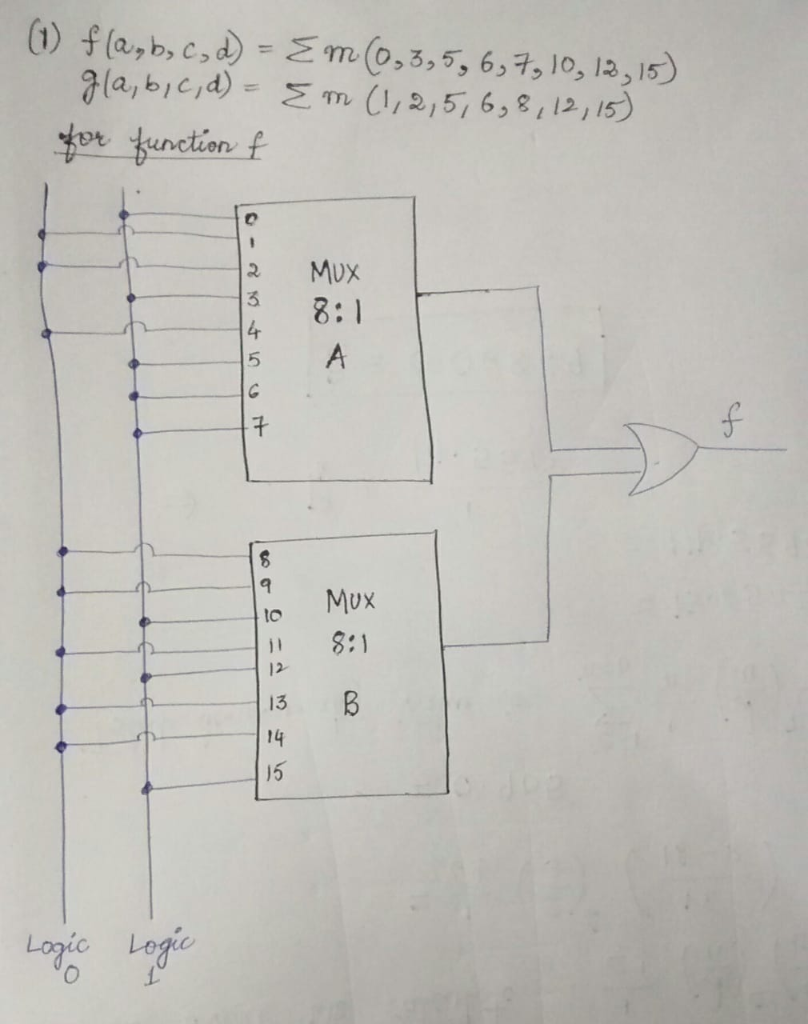 (1) f(a,b,c,d) = Σ m(0,3,5,6,7,10,12,15)
g(a,b,c,d) = Σ m (1,2,5,6,8,12,15)
for function f
0
1
2
3
4
5
6
7
MUX
8:1
A
f
8
9
10
11
12
13
14
15
MUX
8:1
B
Logic
0
Logic
1